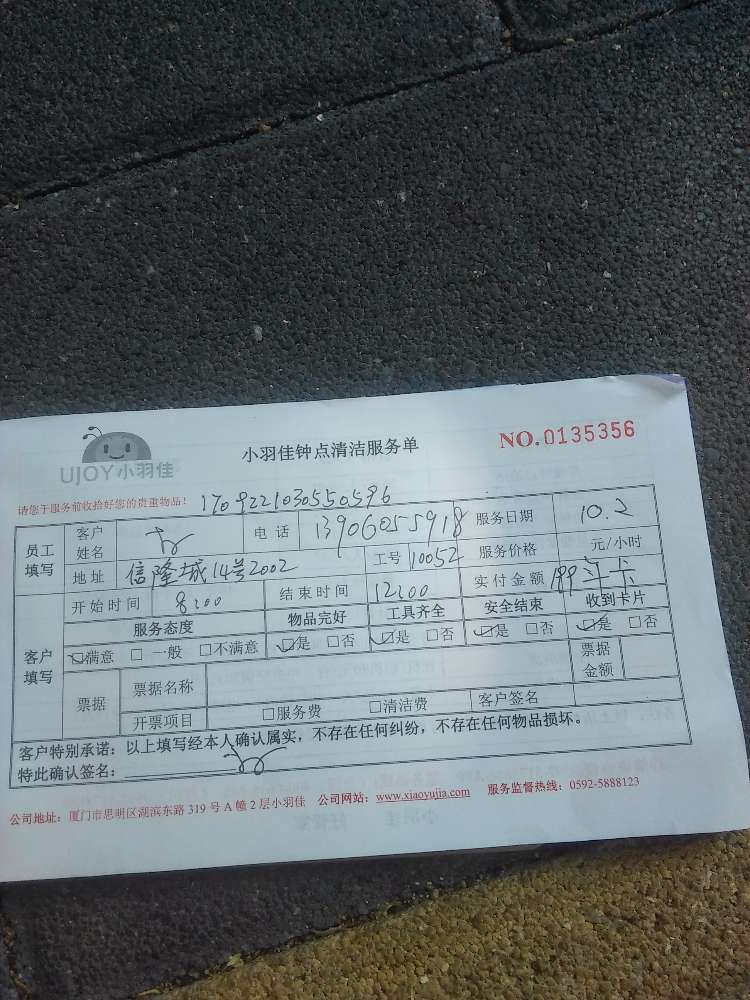 UJOY小羽佳
小羽佳钟点清洁服务单
NO.0135356
请您于服务前收拾好您的贵重物品！
1709221030550596
员工填写 客户姓名 电话 13906055918 服务日期 10.2
地址 信隆城14号2002 工号 10052 服务价格 元/小时
开始时间 8:00 结束时间 12:00 实付金额
客户填写 服务态度 物品完好 工具齐全 安全结束 收到卡片
☑满意 □一般 □不满意 ☑是 □否 ☑是 □否 ☑是 □否 ☑是 □否
票据 票据名称 票据金额
开票项目 □服务费 □清洁费 客户签名
客户特别承诺：以上填写经本人确认属实，不存在任何纠纷，不存在任何物品损坏。
特此确认签名：
公司地址：厦门市思明区湖滨东路 319 号 A 幢 2 层小羽佳 公司网站：www.xiaoyujia.com 服务监督热线：0592-5888123